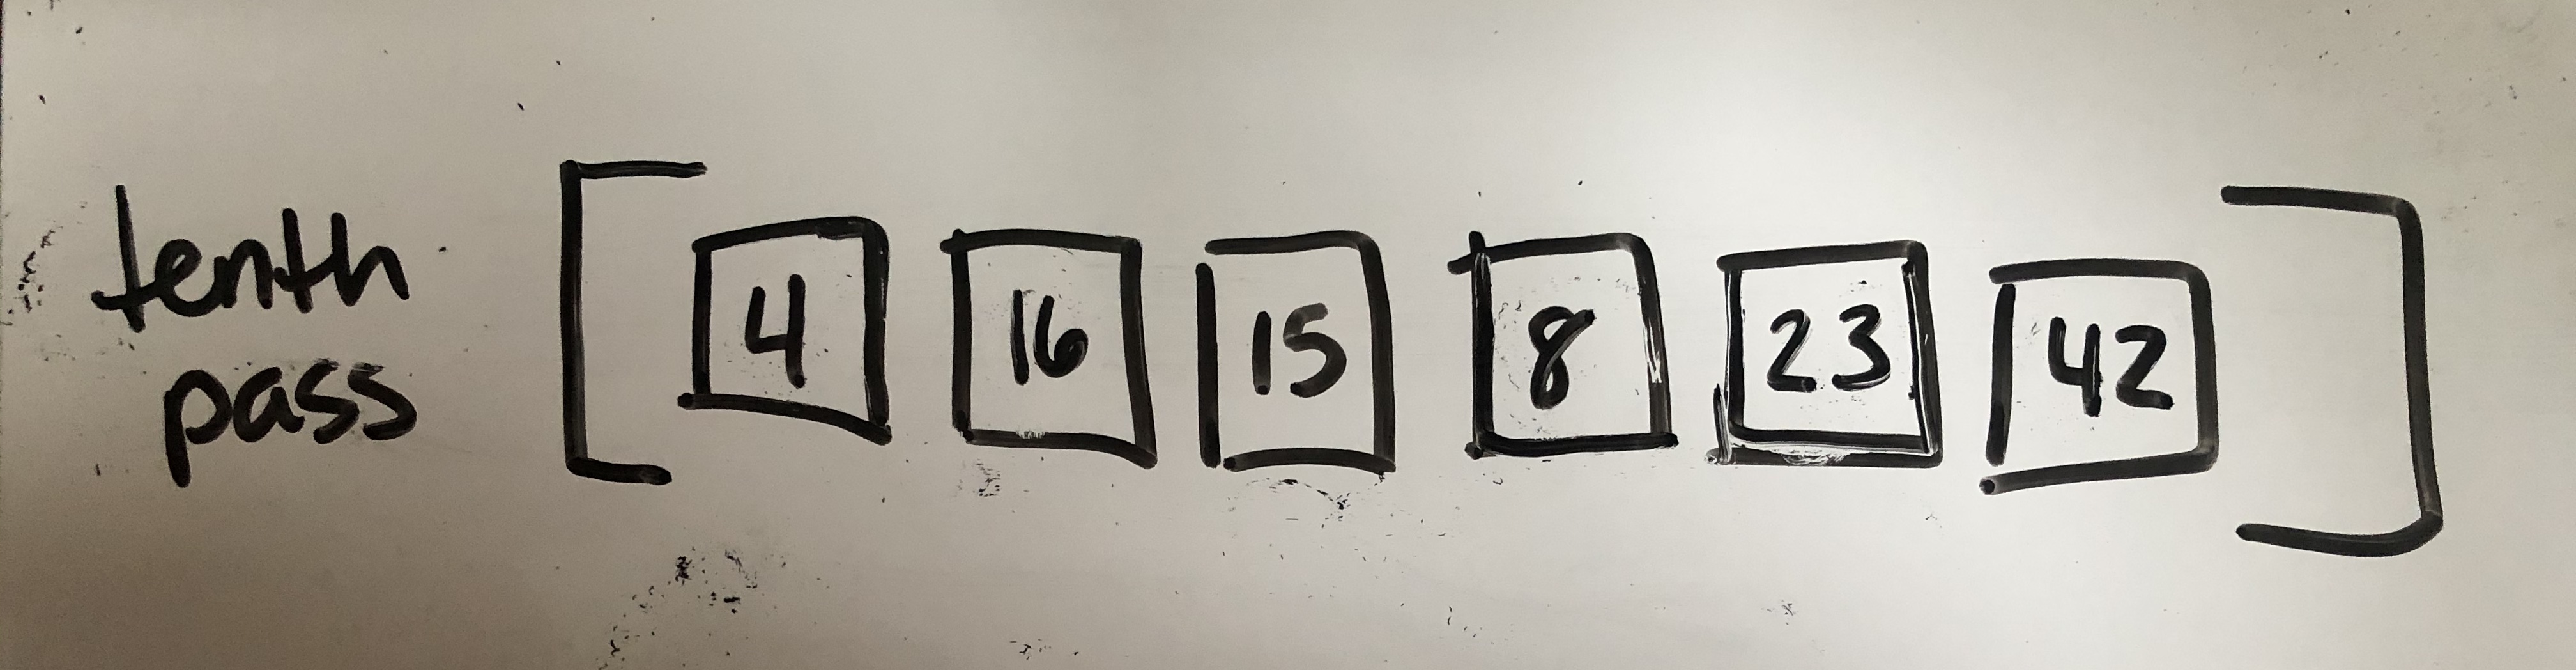 tenth
pass
[ 4 16 15 8 23 42 ]